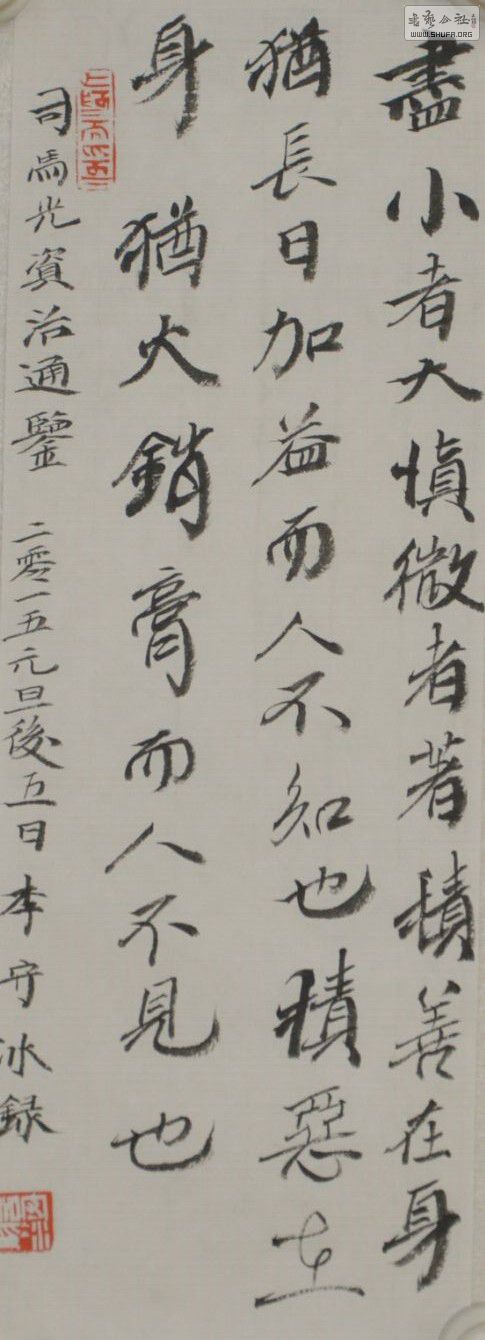 盡小者大慎微者著積善在身
猶長日加益而人不知也積惡在
身猶火銷膏而人不見也
司馬光資治通鑒 二零一五元旦後五日 李守冰録
WWW.SHUFA.ORG